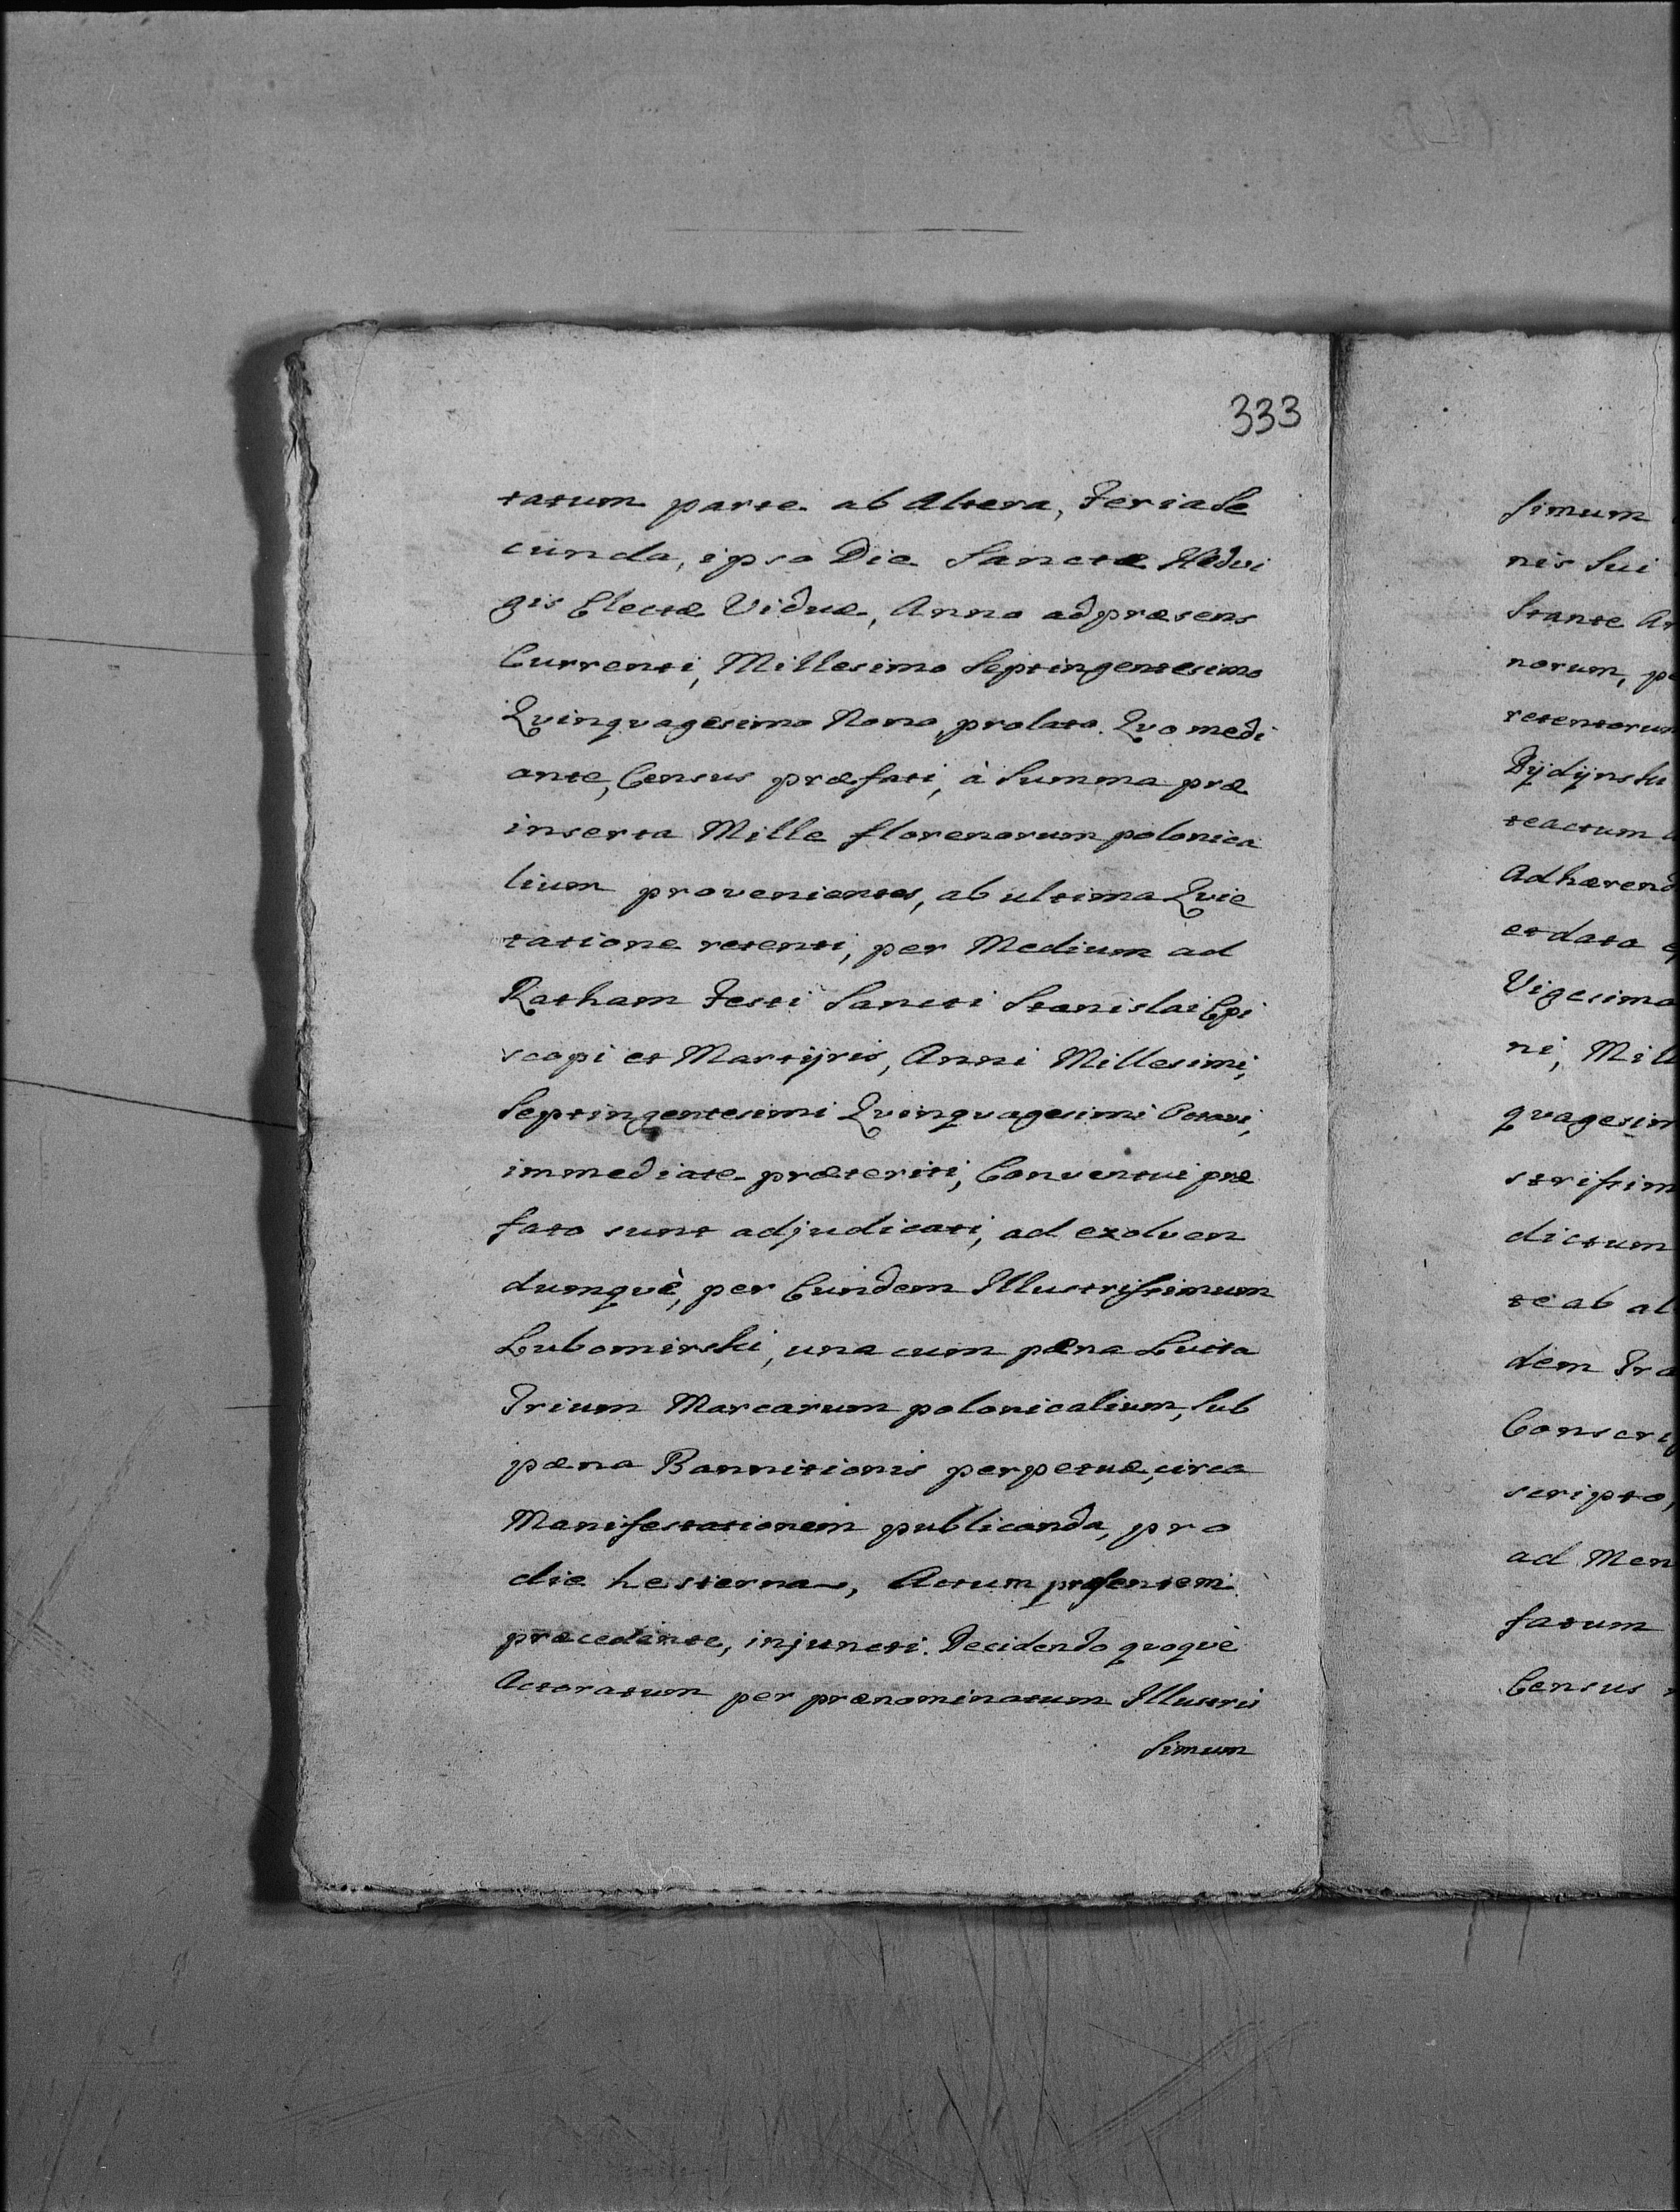 333
tatum parte ab Altera, Feria Se
cunda, ipso Die Sanctæ Hedvi
gis Electæ Viduæ, Anno ad præsens
Currenti, Millesimo Septingentesimo
Quinquagesimo Nono, prolato. Quo medi
ante, Census præfati, à Summa præ
inserta Mille florenorum polonica
lium provenientes, ab ultima Quie
tatione retenti, per Medium ad
Ratham Festi Sancti Stanislai Epi
scopi et Martÿris, Anni Millesimi,
Septingentesimi Quinquagesimi Octavi,
immediate præteriti, Conventui præ
fato sunt adjudicati, ad exolven
dumquè, per Eundem Illustrissimum
Lubomirski, una cum pæna Luita
Trium Marcarum polonicalium, sub
pæna Bannitionis perpetuæ, circa
Manifestationem publicanda, pro
die hesterna, Actum præsentem
præcedente, injuncti. Decidendo quoquè
Actoratum per prænominatum Illustris
simum
simum
nis Sui
Stante
norum,
retentorum
Dÿdÿnski
teactum
Adhærend
et data
Vigesima
ni, Mill
quagesim
strissim
dictum
te ab al
dem Tra
Conscri
scripto,
ad Men
fatum
Census